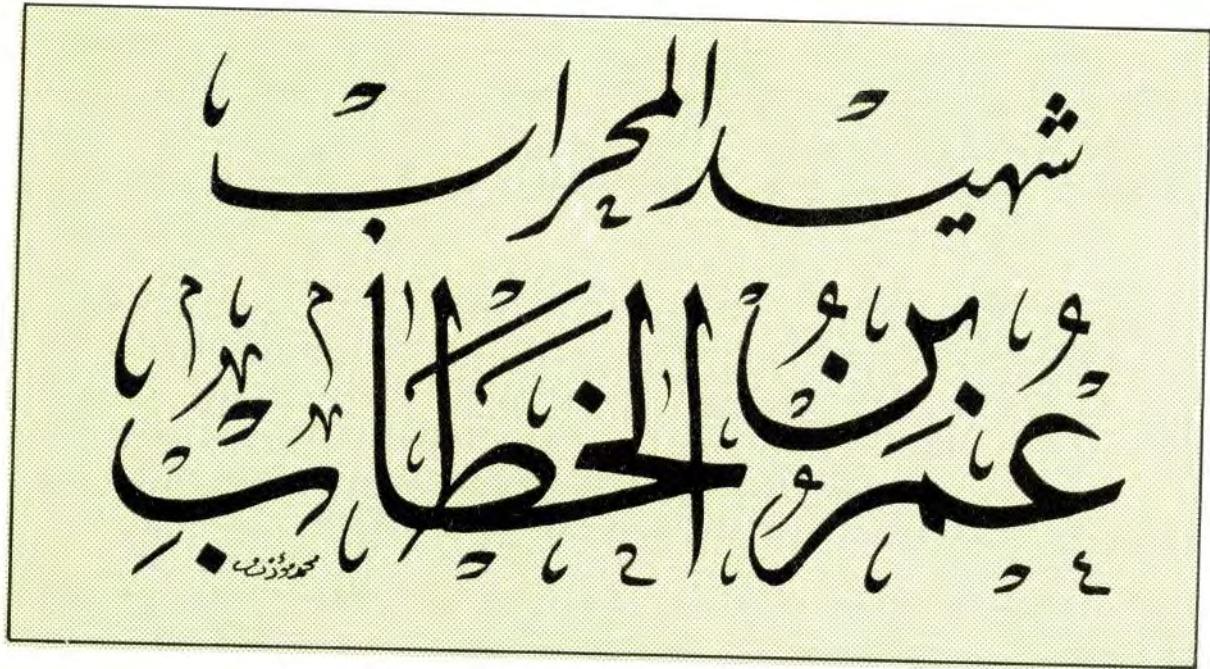 شهيد المحراب
عُمَرُ بْنُ الخَطَّابِ